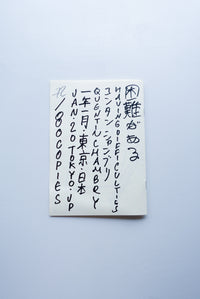 困難がある
HAVING DIFFICULTIES
コンタン シャンブリ
QUENTIN CHAMBRY
一年一月・東京・日本
JAN・20・TOKYO・JP
/80 COPIES